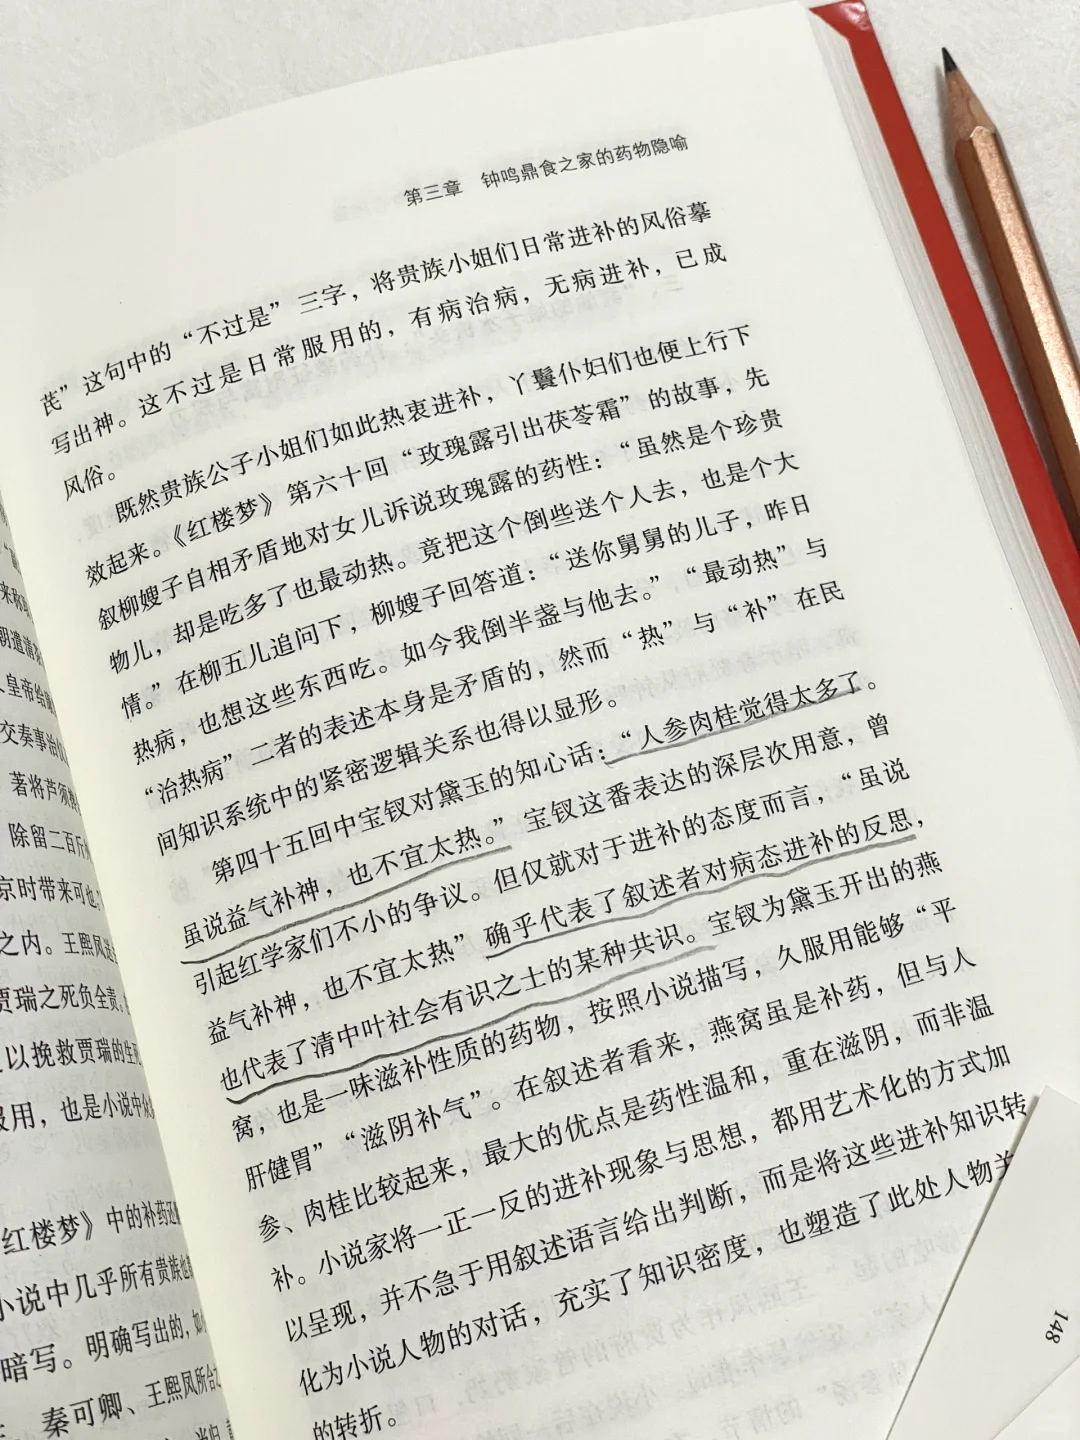 来称
朝遣清
人皇帝给
交奏事治
著将芦须
除留二百斤
京时带来可也
之内。王熙凤
贾瑞之死负全责。
以挽救贾瑞的生
服用，也是小说中
红楼梦》中的补药还
小说中几乎所有贵族也
暗写。明确写出的，如
秦可卿、王熙凤所合之
第三章 钟鸣鼎食之家的药物隐喻
芪”这句中的“不过是”三字，将贵族小姐们日常进补的风俗摹
写出神。这不过是日常服用的，有病治病，无病进补，已成
风俗。
既然贵族公子小姐们如此热衷进补，丫鬟仆妇们也便上行下
效起来。《红楼梦》第六十回“玫瑰露引出茯苓霜”的故事，先
叙柳嫂子自相矛盾地对女儿诉说玫瑰露的药性：“虽然是个珍贵
物儿，却是吃多了也最动热。竟把这个倒些送个人去，也是个大
情。”在柳五儿追问下，柳嫂子回答道：“送你舅舅的儿子，昨日
热病，也想这些东西吃。如今我倒半盏与他去。”“最动热”与
“治热病”二者的表述本身是矛盾的，然而“热”与“补”在民
间知识系统中的紧密逻辑关系也得以显形。
第四十五回中宝钗对黛玉的知心话：“人参肉桂觉得太多了。
虽说益气补神，也不宜太热。”宝钗这番表达的深层次用意，曾
引起红学家们不小的争议。但仅就对于进补的态度而言，“虽说
益气补神，也不宜太热”确乎代表了叙述者对病态进补的反思，
也代表了清中叶社会有识之士的某种共识。宝钗为黛玉开出的燕
窝，也是一味滋补性质的药物，按照小说描写，久服用能够“平
肝健胃”“滋阴补气”。在叙述者看来，燕窝虽是补药，但与人
参、肉桂比较起来，最大的优点是药性温和，重在滋阴，而非温
补。小说家将一正一反的进补现象与思想，都用艺术化的方式加
以呈现，并不急于用叙述语言给出判断，而是将这些进补知识转
化为小说人物的对话，充实了知识密度，也塑造了此处人物关
的转折。
148